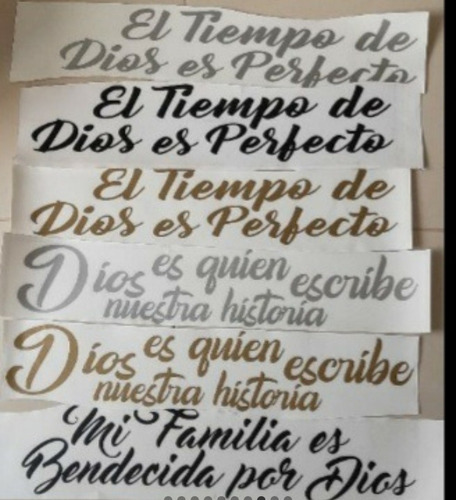 El Tiempo de
Dios es Perfecto
El Tiempo de
Dios es Perfecto
El Tiempo de
Dios es Perfecto
Dios es quien escribe
nuestra historia
Dios es quien escribe
nuestra historia
Mi Familia es
Bendecida por Dios